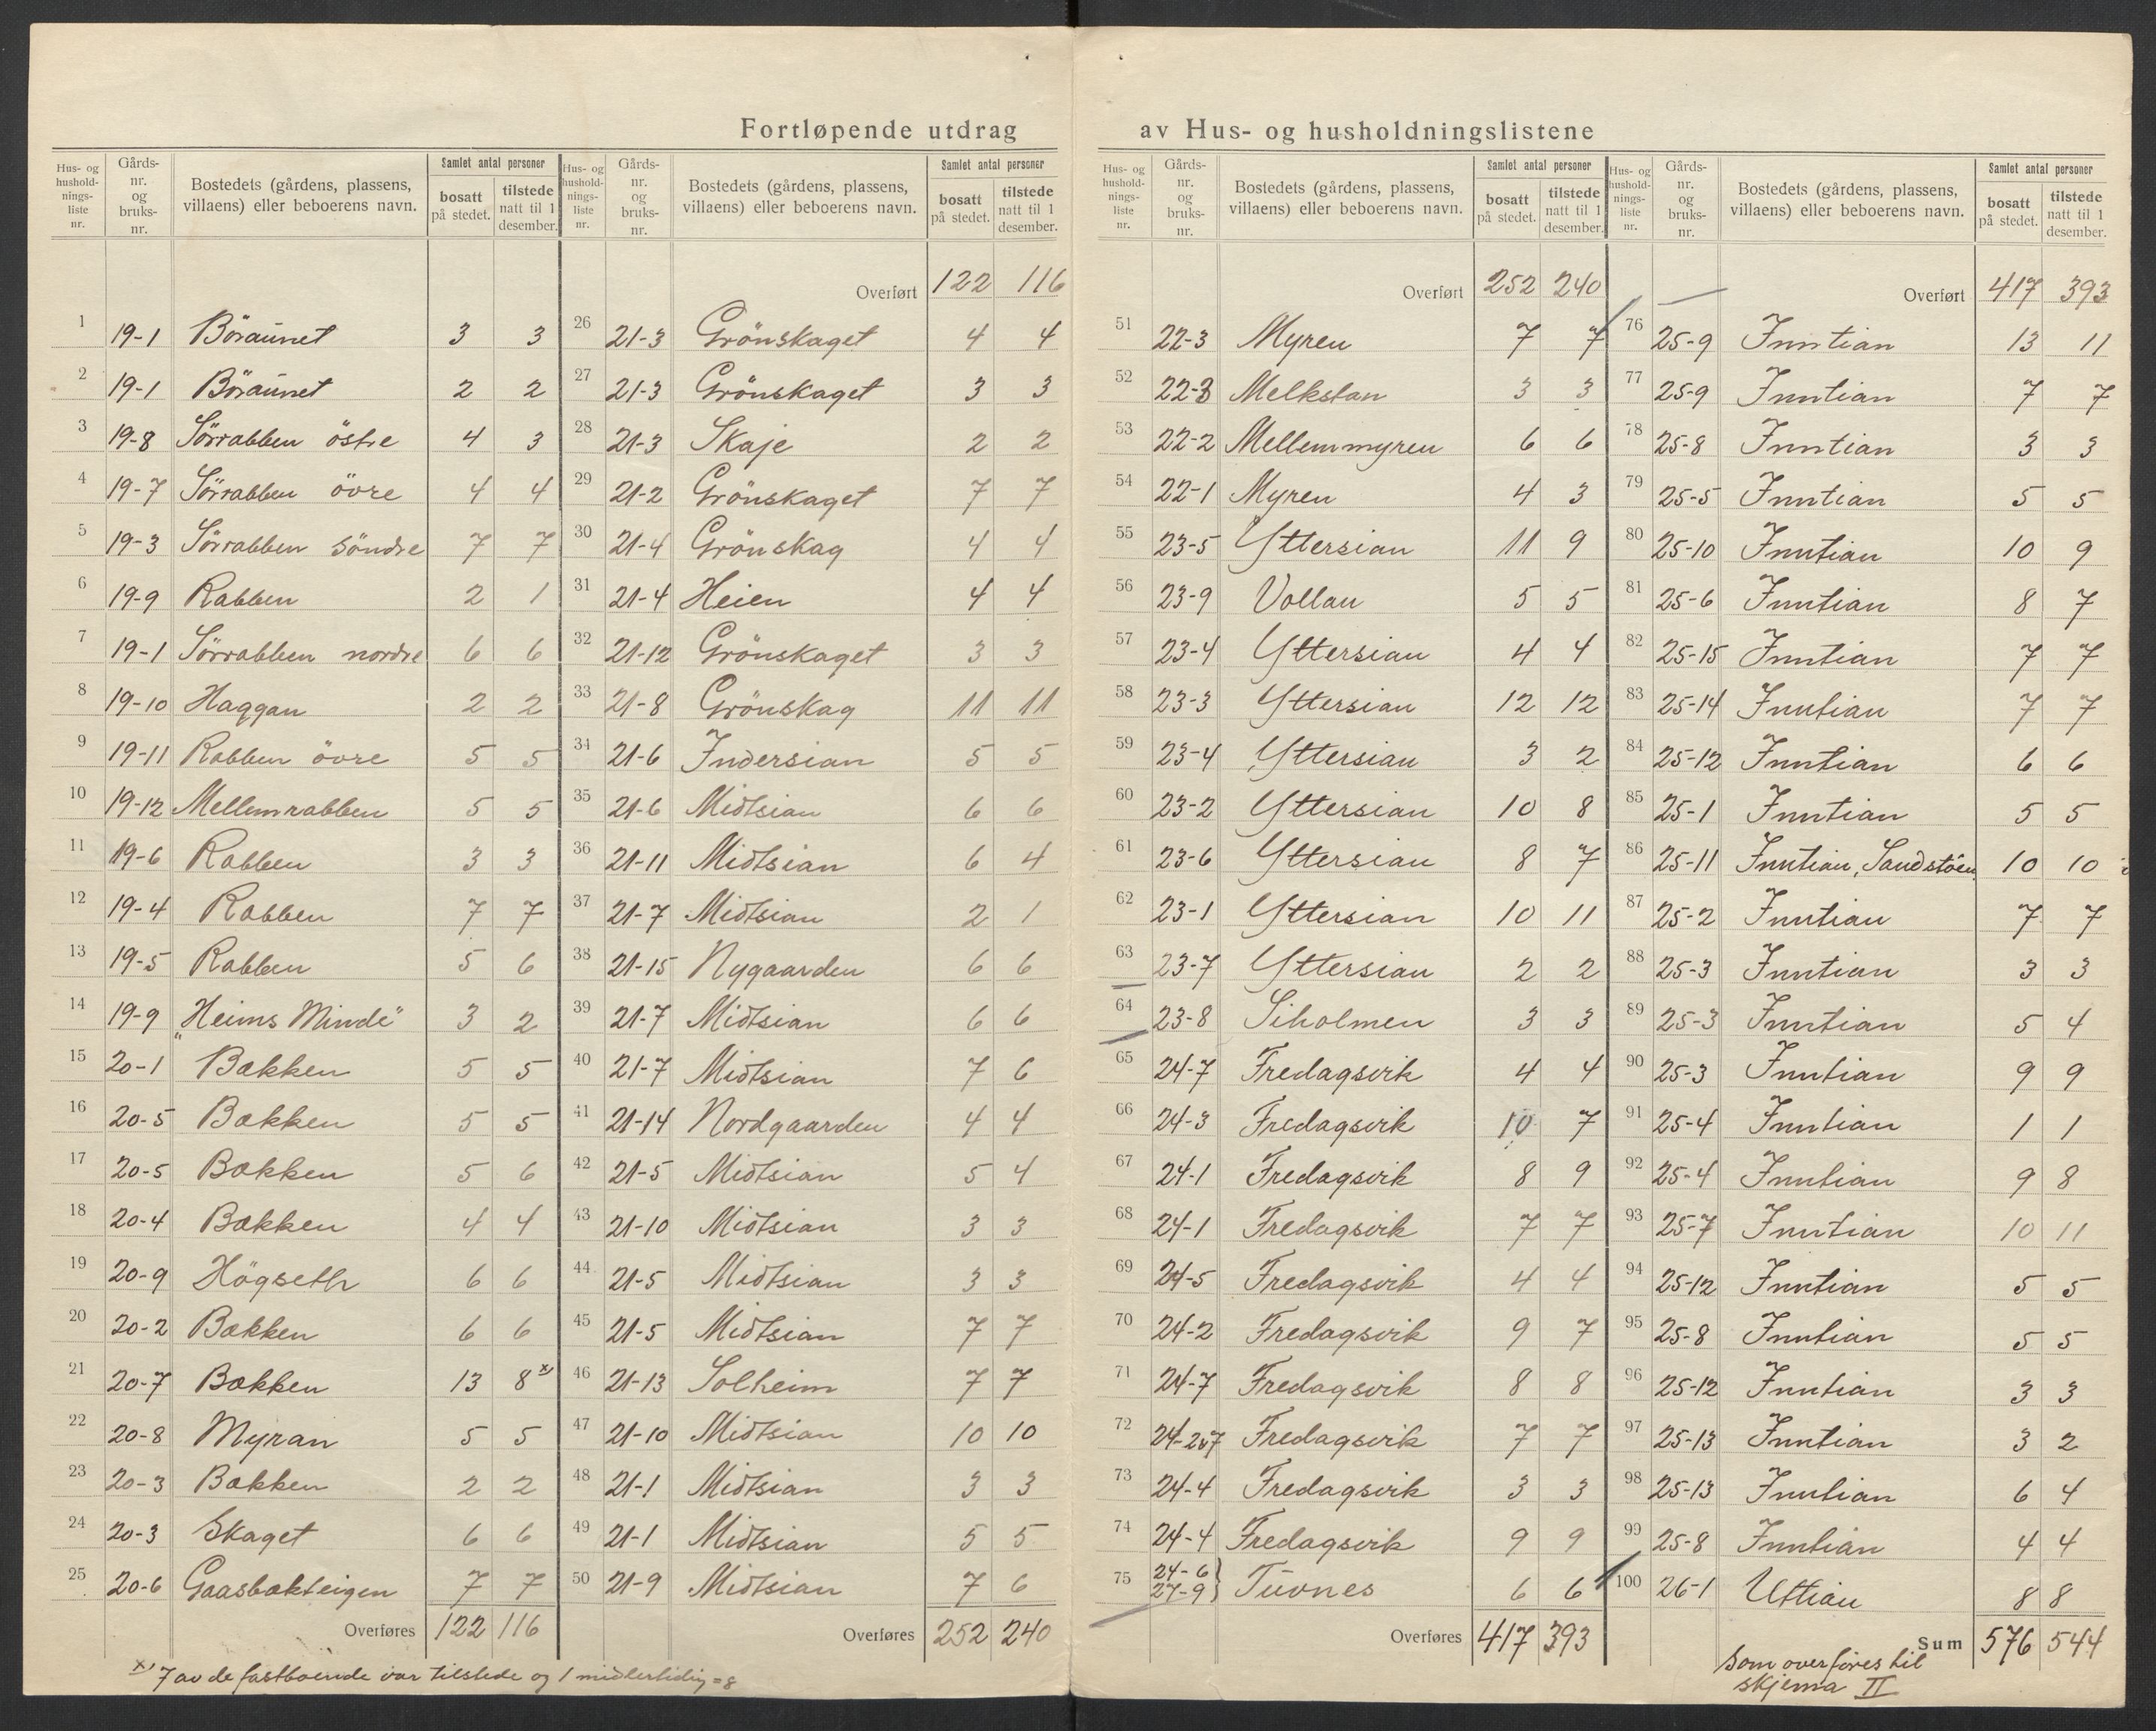 Fortløpende utdrag av Hus- og husholdningslistene
Hus- og husholdningsliste nr. | Gårdsnr. og bruksnr. | Bostedets (gårdens, plassens, villaens) eller beboerens navn. | Samlet antal personer | bosatt på stedet. | tilstede natt til 1 desember.
1 19-1 Böraunet 3 3
2 19-1 Böraunet 2 2
3 19-8 Sörrabben östre 4 3
4 19-7 Sörrabben övre 4 4
5 19-3 Sörrabben söndre 7 7
6 19-9 Rabben 2 1
7 19-1 Sörrabben nordre 6 6
8 19-10 Haggan 2 2
9 19-11 Rabben övre 5 5
10 19-12 Mellemrabben 5 5
11 19-6 Rabben 3 3
12 19-4 Rabben 7 7
13 19-5 Rabben 5 6
14 19-9 „Heims Minde" 3 2
15 20-1 Bakken 5 5
16 20-5 Bakken 5 5
17 20-5 Bakken 5 6
18 20-4 Bakken 4 4
19 20-9 Högseth 6 6
20 20-2 Bakken 6 6
21 20-7 Bakken 13 8 x)
22 20-8 Myran 5 5
23 20-3 Bakken 2 2
24 20-3 Skaget 6 6
25 20-6 Gaasbakteigen 7 7
Overføres 122 116
x) 7 av de fastboende var tilstede og 1 midlertidig = 8
Hus- og husholdningsliste nr. | Gårdsnr. og bruksnr. | Bostedets (gårdens, plassens, villaens) eller beboerens navn. | Samlet antal personer | bosatt på stedet. | tilstede natt til 1 desember.
Overført 122 116
26 21-3 Grönskaget 4 4
27 21-3 Grönskaget 3 3
28 21-3 Skaje 2 2
29 21-2 Grönskaget 7 7
30 21-4 Grönskag 4 4
31 21-4 Heien 4 4
32 21-12 Grönskaget 3 3
33 21-8 Grönskag 11 11
34 21-6 Indersian 5 5
35 21-6 Midtsian 6 6
36 21-11 Midtsian 6 4
37 21-7 Midtsian 2 1
38 21-15 Nygaarden 6 6
39 21-7 Midtsian 6 6
40 21-7 Midtsian 7 6
41 21-14 Nordgaarden 4 4
42 21-5 Midtsian 5 4
43 21-10 Midtsian 3 3
44 21-5 Midtsian 3 3
45 21-5 Midtsian 7 7
46 21-13 Solheim 7 7
47 21-10 Midtsian 10 10
48 21-1 Midtsian 3 3
49 21-1 Midtsian 5 5
50 21-9 Midtsian 7 6
Overføres 252 240
Hus- og husholdningsliste nr. | Gårdsnr. og bruksnr. | Bostedets (gårdens, plassens, villaens) eller beboerens navn. | Samlet antal personer | bosatt på stedet. | tilstede natt til 1 desember.
Overført 252 240
51 22-3 Myren 7 7
52 22-3 Melkstan 3 3
53 22-2 Mellemmyren 6 6
54 22-1 Myren 4 3
55 23-5 Yttersian 11 9
56 23-9 Vollan 5 5
57 23-4 Yttersian 4 4
58 23-3 Yttersian 12 12
59 23-4 Yttersian 3 2
60 23-2 Yttersian 10 8
61 23-6 Yttersian 8 7
62 23-1 Yttersian 10 11
63 23-7 Yttersian 2 2
64 23-8 Siholmen 3 3
65 24-7 Fredagsvik 4 4
66 24-3 Fredagsvik 10 7
67 24-1 Fredagsvik 8 9
68 24-1 Fredagsvik 7 7
69 24-5 Fredagsvik 4 4
70 24-2 Fredagsvik 9 7
71 24-7 Fredagsvik 8 8
72 Fredagsvik 7 7
73 24-4 Fredagsvik 3 3
74 24-4 Fredagsvik 9 9
75 24-6 27-9 } Tuvnes 6 6
Overføres 417 393
Hus- og husholdningsliste nr. | Gårdsnr. og bruksnr. | Bostedets (gårdens, plassens, villaens) eller beboerens navn. | Samlet antal personer | bosatt på stedet. | tilstede natt til 1 desember.
Overført 417 393
76 25-9 Inntian 13 11
77 25-9 Inntian 7 7
78 25-8 Inntian 3 3
79 25-5 Inntian 5 5
80 25-10 Inntian 10 9
81 25-6 Inntian 8 7
82 25-15 Inntian 7 7
83 25-14 Inntian 7 7
84 25-12 Inntian 6 6
85 25-1 Inntian 5 5
86 25-11 Inntian, Sandstöen 10 10
87 25-2 Inntian 7 7
88 25-3 Inntian 3 3
89 25-3 Inntian 5 4
90 25-3 Inntian 9 9
91 25-4 Inntian 1 1
92 25-4 Inntian 9 8
93 25-7 Inntian 10 11
94 25-12 Inntian 5 5
95 25-8 Inntian 5 5
96 25-12 Inntian 3 3
97 25-13 Inntian 3 2
98 25-13 Inntian 6 4
99 25-8 Inntian 4 4
100 26-1 Uttian 8 8
Sum 576 544
som overföres til
skjema II